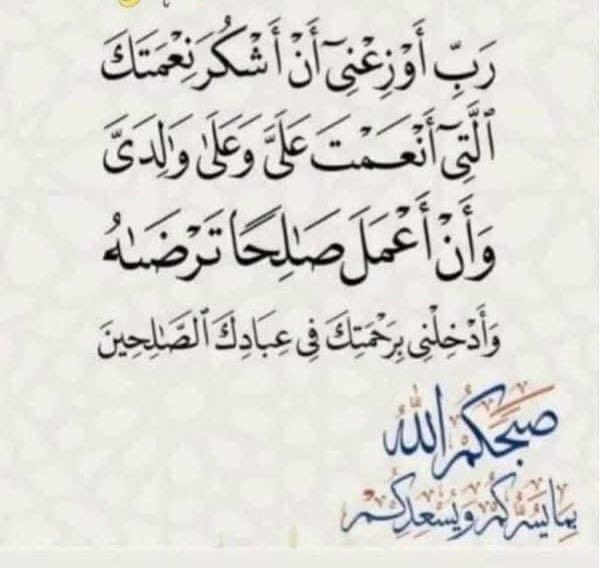 رَبِّ أَوْزِعْنِىٓ أَنْ أَشْكُرَ نِعْمَتَكَ
ٱلَّتِىٓ أَنْعَمْتَ عَلَىَّ وَعَلَىٰ وَٰلِدَىَّ
وَأَنْ أَعْمَلَ صَٰلِحًا تَرْضَىٰهُ
وَأَدْخِلْنِى بِرَحْمَتِكَ فِى عِبَادِكَ ٱلصَّٰلِحِينَ
صبحكم الله
بما يسركم ويسعدكم